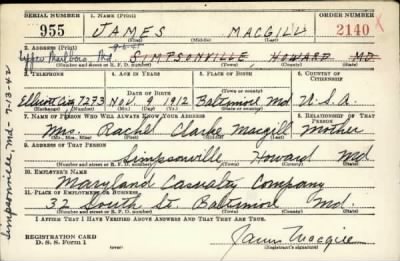 SERIAL NUMBER 1. NAME (Print) ORDER NUMBER
955 JAMES MACGILL 2140
(First) (Middle) (Last)
2. ADDRESS (Print)
Upper Marlboro, Md SIMPSONVILLE, HOWARD MD.
(Number and street or R. F. D. number) (Town) (County) (State)
3. TELEPHONE 4. AGE IN YEARS 5. PLACE OF BIRTH 6. COUNTRY OF CITIZENSHIP
DATE OF BIRTH
Ellicott City 7273 Nov. 1912 Baltimore Md U.S.A.
(Exchange) (Number) (Mo.) (Day) (Yr.) (Town or county) (State or country)
7. NAME OF PERSON WHO WILL ALWAYS KNOW YOUR ADDRESS 8. RELATIONSHIP OF THAT PERSON
Mrs. Rachel Clarke Macgill Mother
(Mr., Mrs., Miss) (First) (Middle) (Last)
9. ADDRESS OF THAT PERSON
Simpsonville Howard Md
(Number and street or R. F. D. number) (Town) (County) (State)
10. EMPLOYER'S NAME
Maryland Casualty Company
11. PLACE OF EMPLOYMENT OR BUSINESS
32 South St. Baltimore Md.
(Number and street or R. F. D. number) (Town) (County) (State)
I AFFIRM THAT I HAVE VERIFIED ABOVE ANSWERS AND THAT THEY ARE TRUE.
REGISTRATION CARD
D. S. S. Form 1
James Macgill
(Registrant's signature)
Simpsonville, Md - 7-13-42